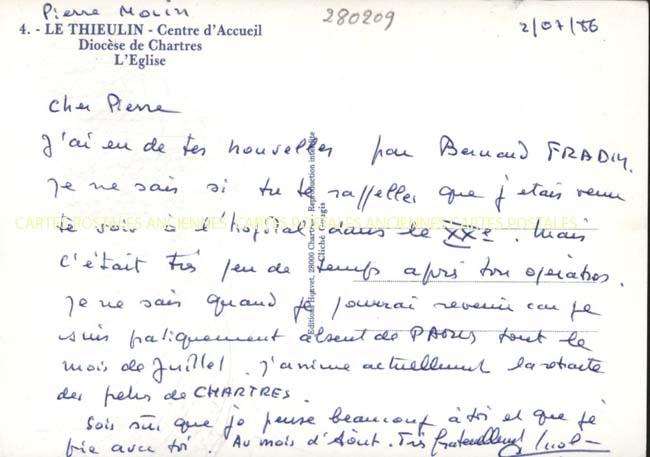 Pierre Morin
280209
2/07/86
4. - LE THIEULIN - Centre d'Accueil
Diocèse de Chartres
L'Eglise
Cher Pierre
J'ai eu de tes nouvelles par Bernard FRADIN.
Je ne sais si tu te rappelles que j'etais venu
te voir à l'hopital dans le XXe. Mais
c'était très peu de temps après ton opération.
Je ne sais quand je pourrai revenir car je
suis pratiquement absent de PARIS tout le
mois de Juillet. J'anime actuellement la retraite
des de CHARTRES.
Sois sûr que je pense beaucoup à toi et que je
prie avec toi. Au mois d'Août. Très fraternellement
Editions Houvet, 28000 Chartres - Reproduction interdite
Cliché Giorgis
CARTES POSTALES ANCIENNES CARTES POSTALES ANCIENNES CARTES POSTALES